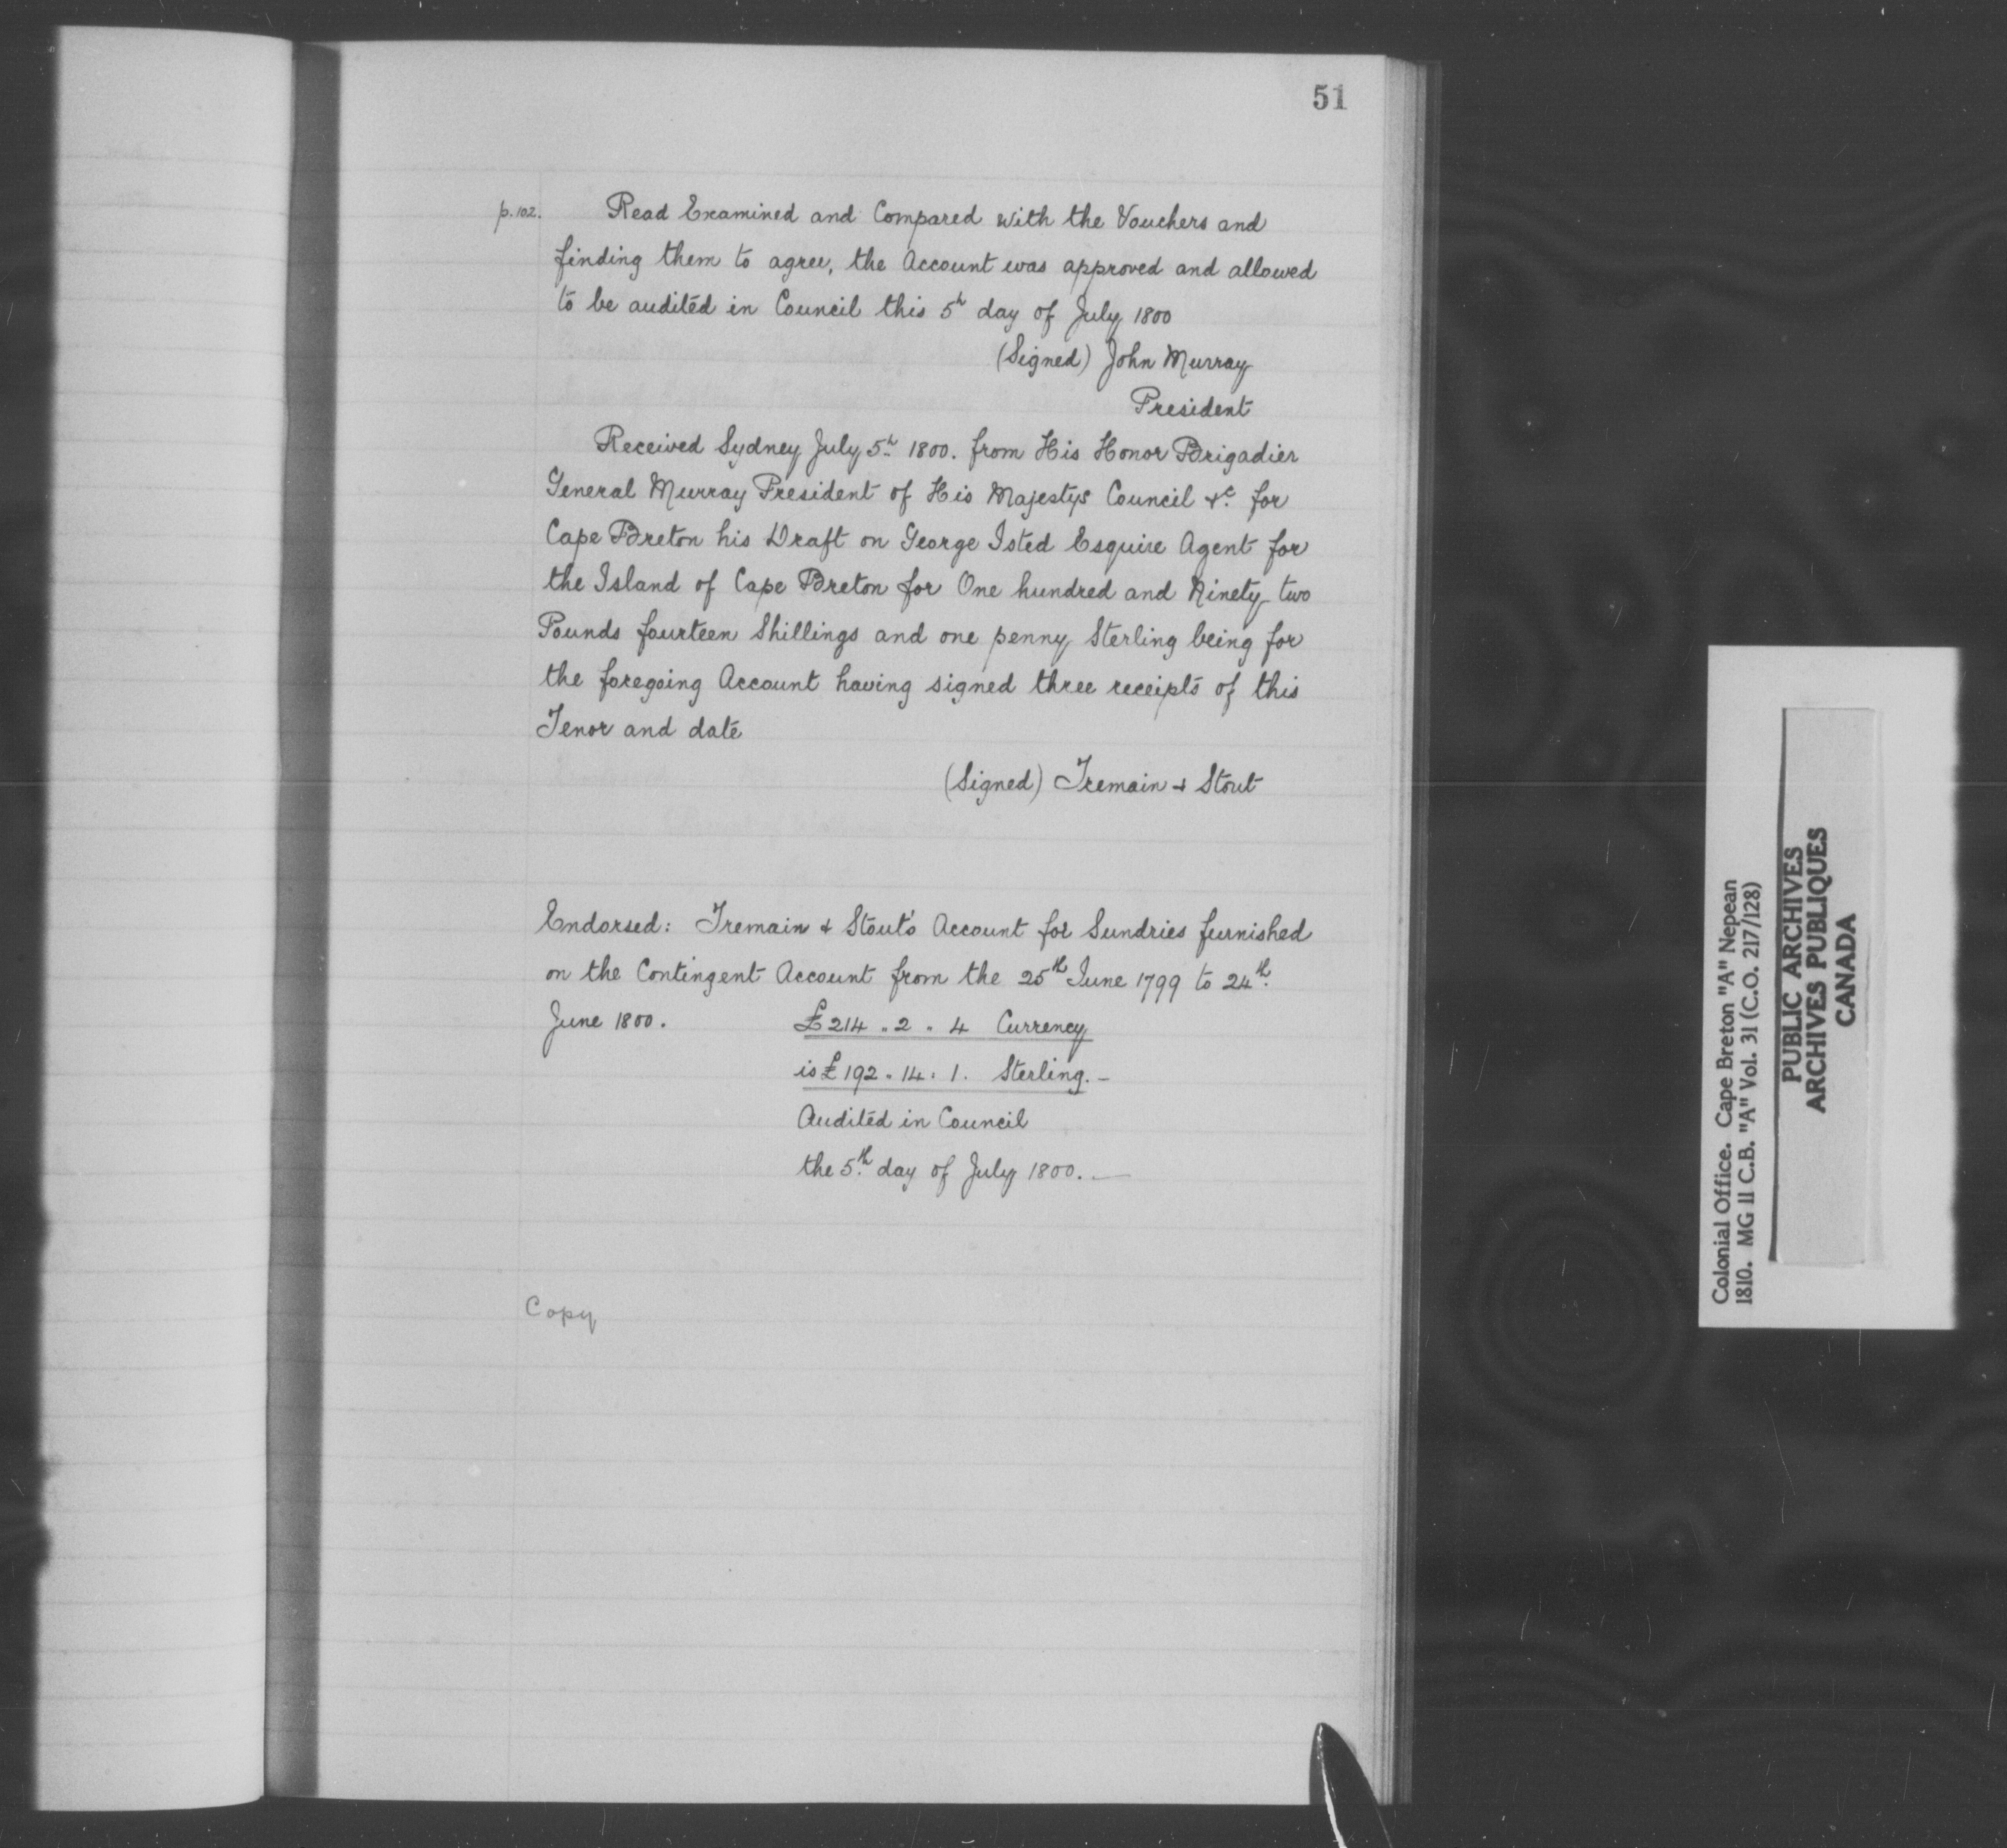 51
p.102. Read Examined and Compared with the Vouchers and
finding them to agree, the Account was approved and allowed
to be audited in Council this 5h day of July 1800
(Signed) John Murray
President
Received Sydney July 5h 1800. from His Honor Brigadier
General Murray President of His Majestys Council &c. for
Cape Breton his Draft on George Isted Esquire Agent for
the Island of Cape Breton for One hundred and Ninety two
Pounds fourteen Shillings and one penny Sterling being for
the foregoing Account having signed three receipts of this
Tenor and date
(Signed) Tremain & Stout
Endorsed: Tremain & Stout's Account for Sundries furnished
on the Contingent Account from the 25th June 1799 to 24th.
June 1800. £214 . 2 . 4 Currency
is £192 . 14 . 1. Sterling.-
Audited in Council
the 5th. day of July 1800.—
Copy
Colonial Office. Cape Breton "A" Nepean
1810. MG 11 C.B. "A" Vol. 31 (C.O. 217/128)
PUBLIC ARCHIVES
ARCHIVES PUBLIQUES
CANADA